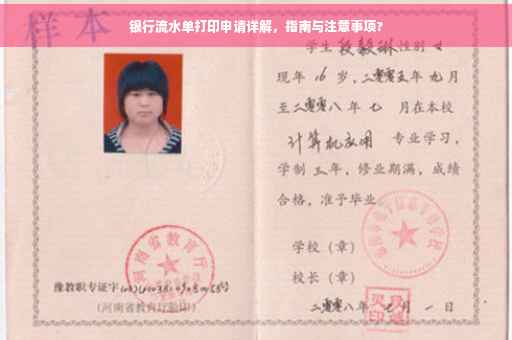 银行流水单打印申请详解，指南与注意事项?
样本
学生 段毅琳 性别 女
现年 16 岁，二零零五年 九月
至二零零八年 七 月在本校
计算机应用 专业学习，
学制 三 年，修业期满，成绩
合格，准予毕业
学校（章）
校长（章）
二零零八年 月 一 日
河南省教育厅
豫教职专证字
（河南省教育厅验印）